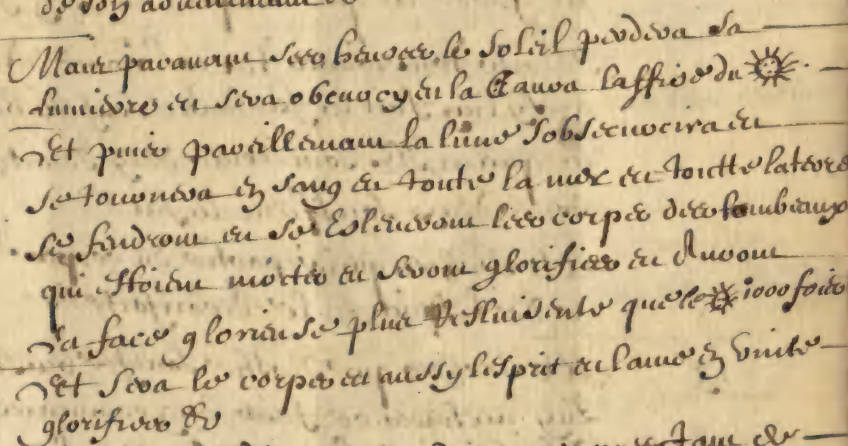 Mais paravant sees heures le soleil perdera sa
lumierre et sera obcurcy et la laura laffire du ☀
Et puies pareillemant la lune s'obsecurcira et
se tournera en sang et toute la mer et toutte la terre
se fendront et se Esleveront lees corpes dees tombeaux
qui estoient mortes et seront glorifiees et auront
la face glorieuse plus Resluisente que le ☀ 1000 foies
Et sera le corpes et aussy lesprit et lame en Unite
glorifiees &c